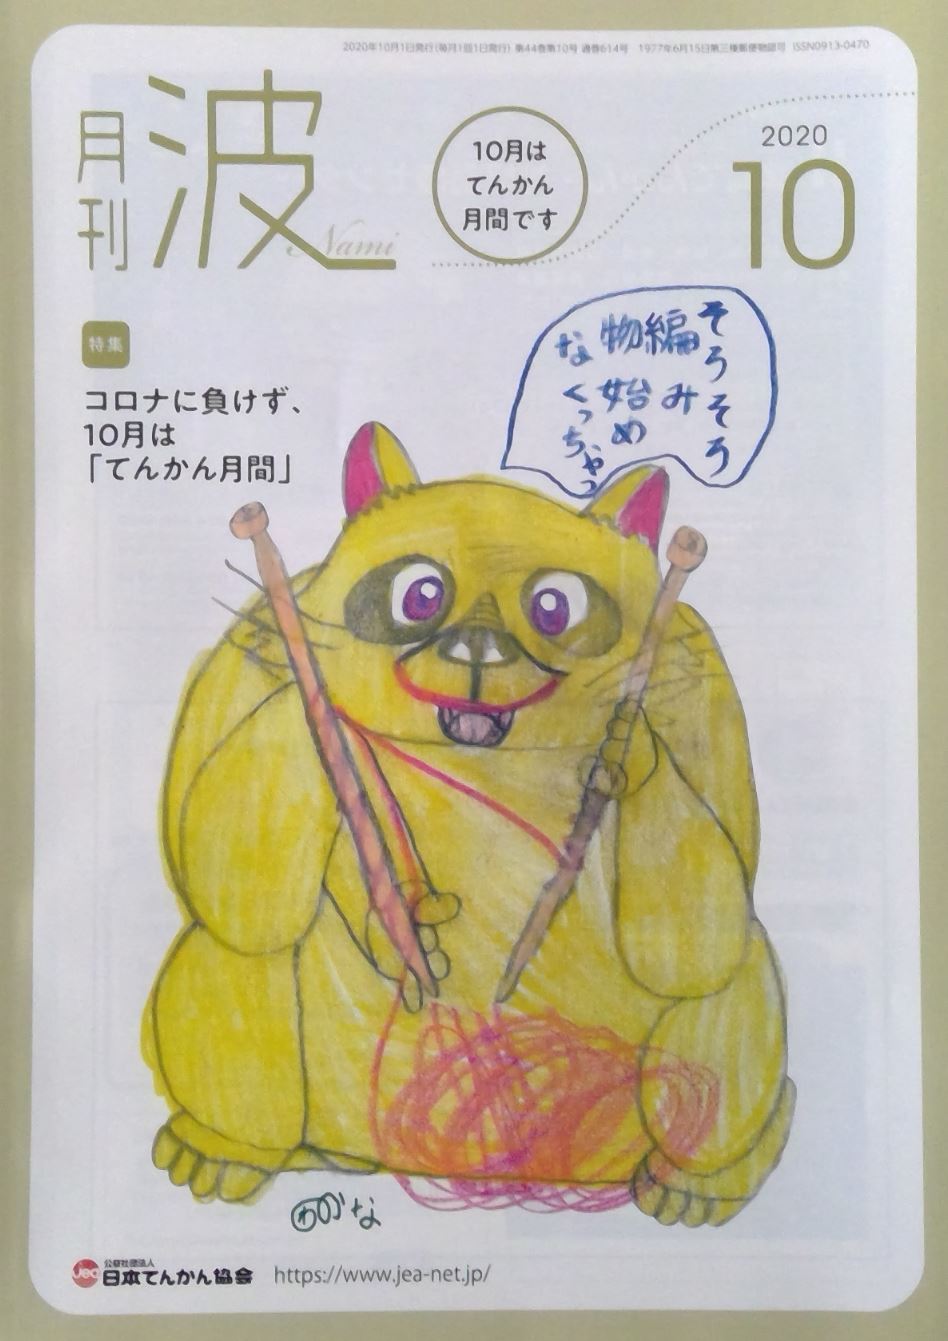 2020年10月1日発行(毎月1回1日発行) 第44巻第10号 通巻614号 1977年6月15日第三種郵便物認可 ISSN0913-0470
月刊
波
Nami
10月は
てんかん
月間です
2020
10
特集
コロナに負けず、
10月は
「てんかん月間」
そろそろ
編み
物始め
なくっちゃっ
わかな
jea
公益社団法人
日本てんかん協会
https://www.jea-net.jp/